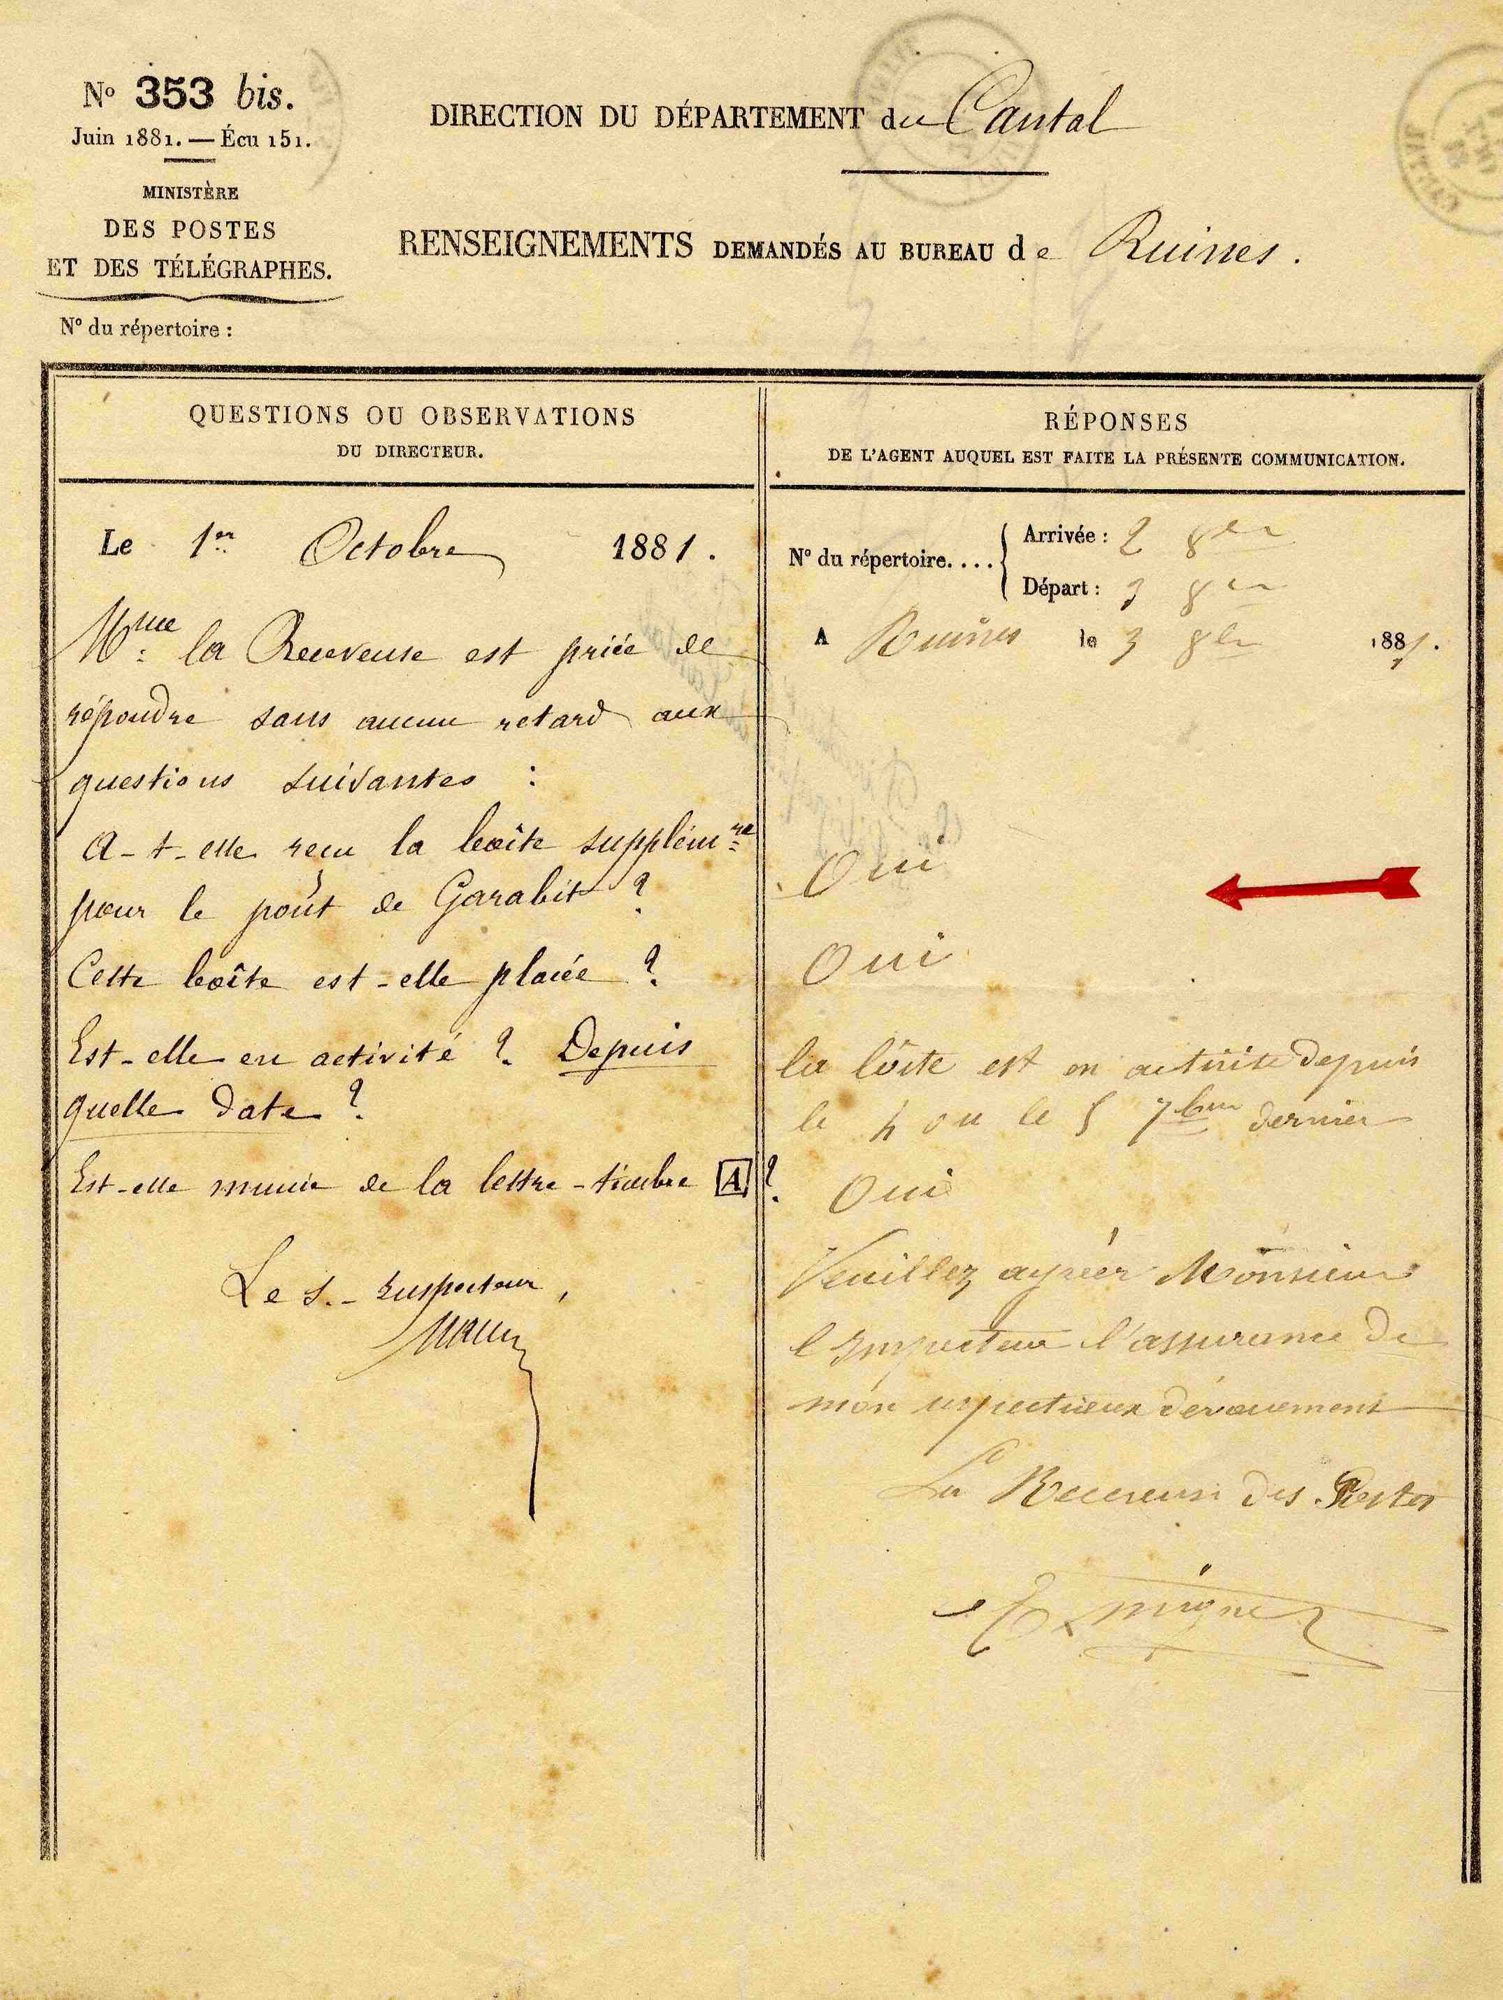 N° 353 bis.
Juin 1881. — Écu 151.
MINISTÈRE
DES POSTES
ET DES TÉLÉGRAPHES.
N° du répertoire :
DIRECTION DU DÉPARTEMENT du Cantal
RENSEIGNEMENTS DEMANDÉS AU BUREAU de Ruines.
QUESTIONS OU OBSERVATIONS
DU DIRECTEUR.
Le 1er Octobre 1881.
Mme la Receveuse est priée de
répondre sans aucun retard aux
questions suivantes :
A-t-elle reçu la boîte supplémre
pour le pont de Garabit ?
Cette boîte est-elle placée ?
Est-elle en activité ? Depuis
quelle date ?
Est-elle munie de la lettre-timbre A ?
Le s.-Inspecteur,
RÉPONSES
DE L'AGENT AUQUEL EST FAITE LA PRÉSENTE COMMUNICATION.
N° du répertoire....
Arrivée : 2 8bre
Départ : 3 8bre
A Ruines le 3 8bre 1881.
Oui
Oui
la boite est en activité depuis
le 4 ou le 5 7bre dernier
Oui
Veuillez agréer Monsieur
l'Inspecteur l'assurance de
mon respectueux dévouement
La Receveuse des Postes